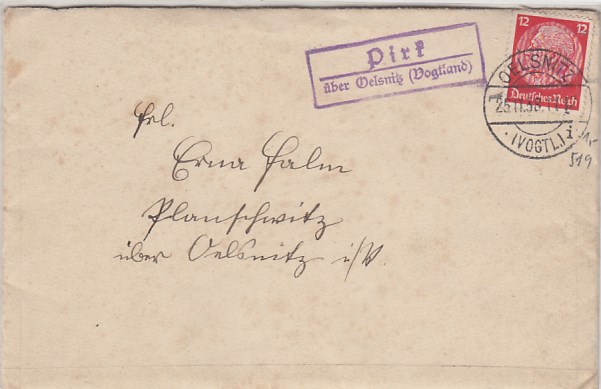 Pirk
über Oelsnitz (Vogtland)
12 12
Deutsches Reich
OELSNITZ
(VOGTL) i
519
Frl.
Erna Palm
Planschwitz
über Oelsnitz i/V.